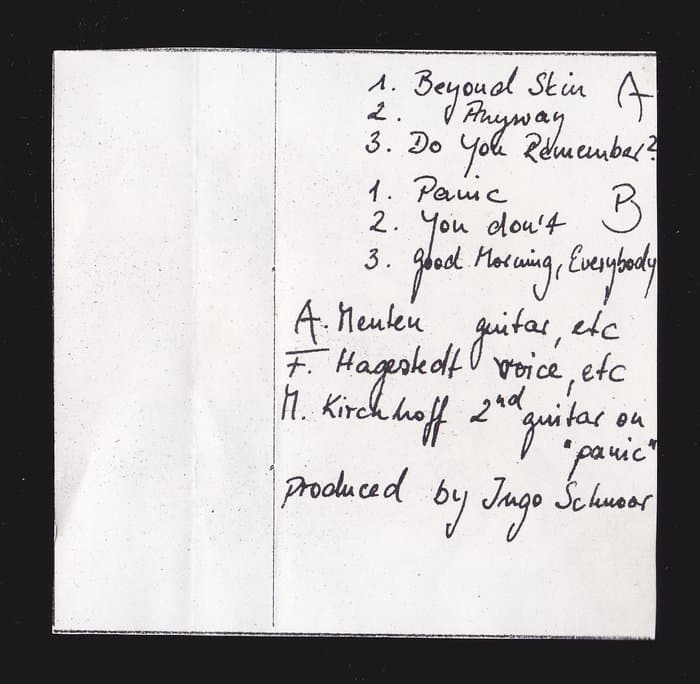 1. Beyond Skin A
2. Anyway
3. Do You Remember?
1. Panic B
2. You don't
3. Good Morning, Everybody
A. Menten guitar, etc
F. Hagestedt voice, etc
M. Kirchhoff 2nd guitar on
"panic"
produced by Ingo Schnoor